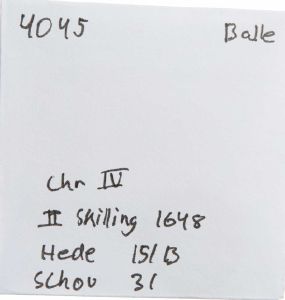 4045 Balle
Chr IV
II Skilling 1648
Hede 151B
Schou 31